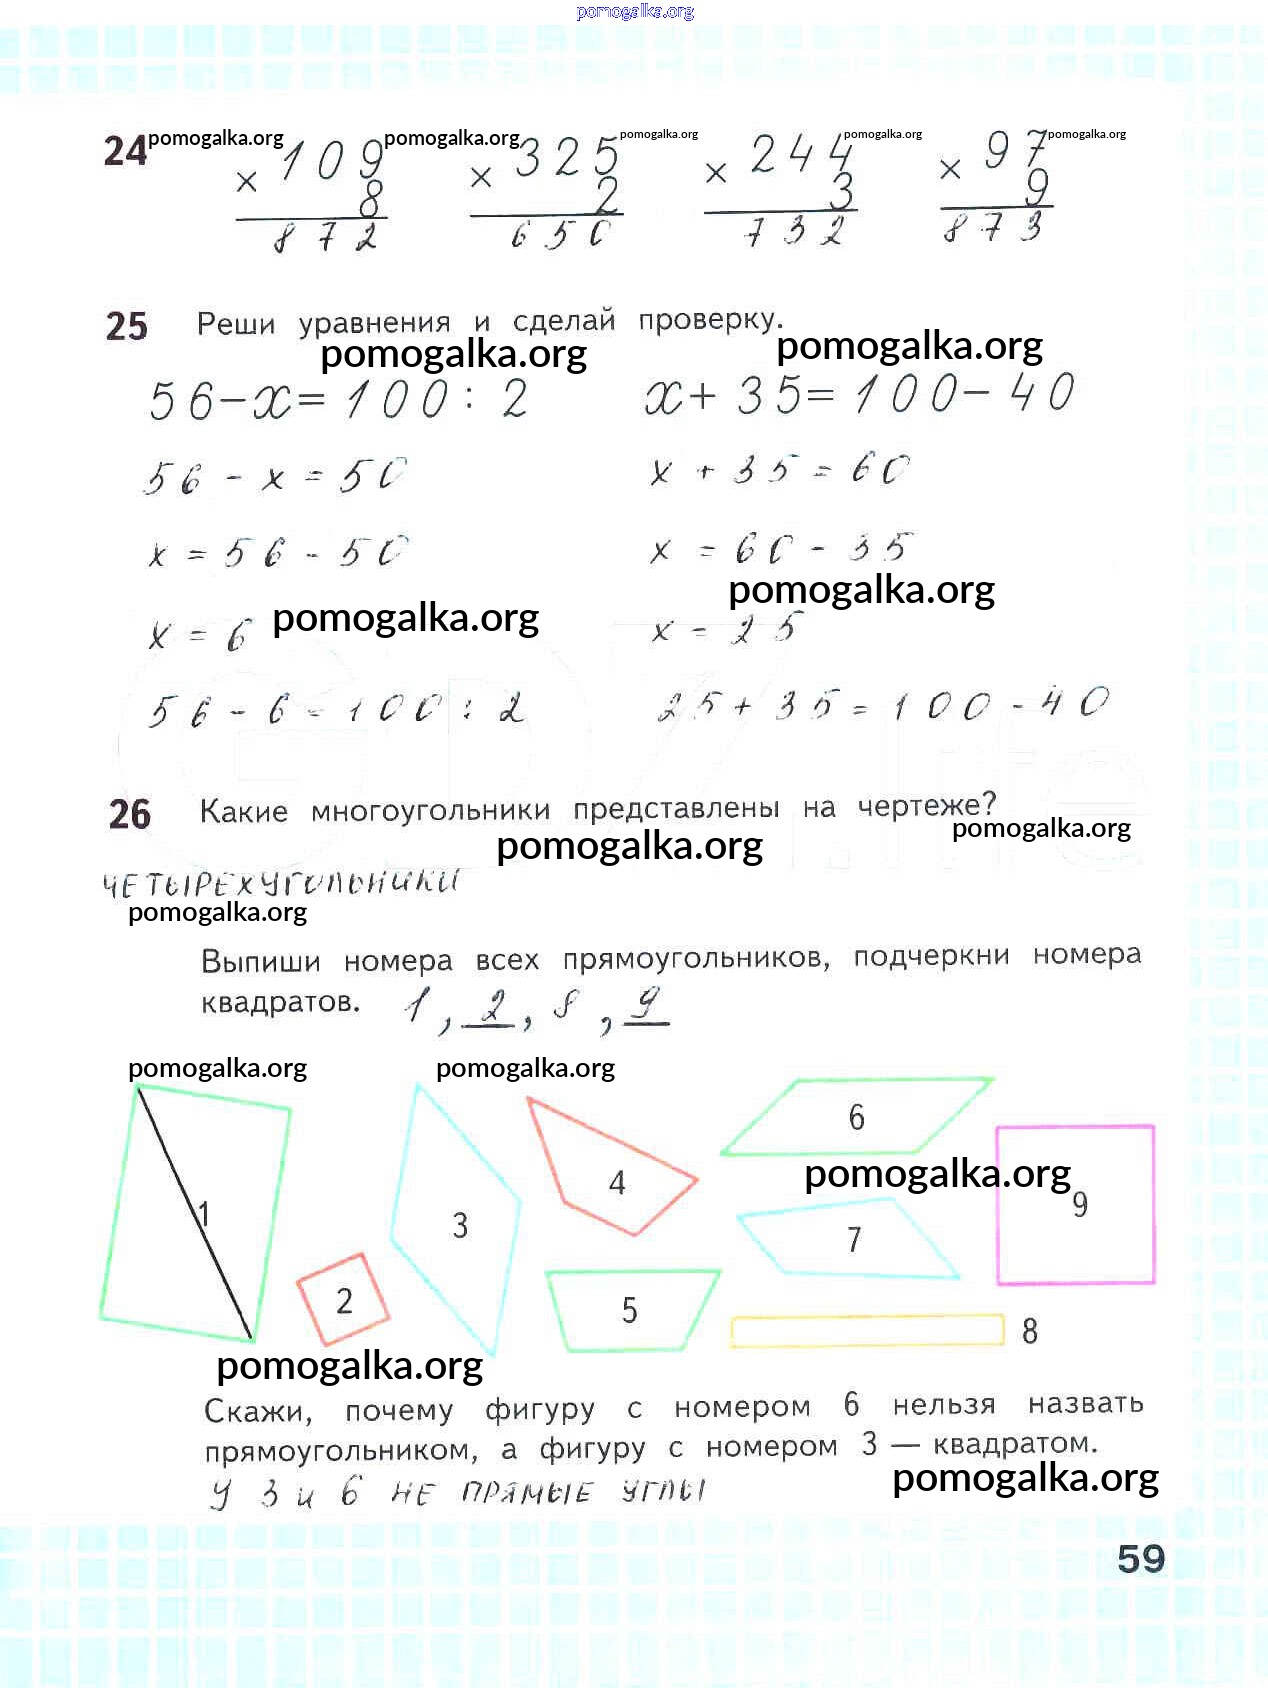 pomogalka.org
24 pomogalka.org pomogalka.org pomogalka.org pomogalka.org pomogalka.org
× 109 × 325 × 244 × 97
8 2 3 9
872 650 732 873
25 Реши уравнения и сделай проверку.
pomogalka.org pomogalka.org
56-x=100:2 x+35=100-40
56-x=50 x+35=60
x=56-50 x=60-35
pomogalka.org
x=6 pomogalka.org x=25
56-6=100:2 25+35=100-40
26 Какие многоугольники представлены на чертеже?
pomogalka.org pomogalka.org
ЧЕТЫРЕХУГОЛЬНИКИ
pomogalka.org
Выпиши номера всех прямоугольников, подчеркни номера
квадратов. 1, 2, 8, 9
pomogalka.org pomogalka.org
6
pomogalka.org
4
1 3 9
7
2 5
8
pomogalka.org
Скажи, почему фигуру с номером 6 нельзя назвать
прямоугольником, а фигуру с номером 3 — квадратом.
pomogalka.org
У 3 и 6 НЕ ПРЯМЫЕ УГЛЫ
59
GDZ.life